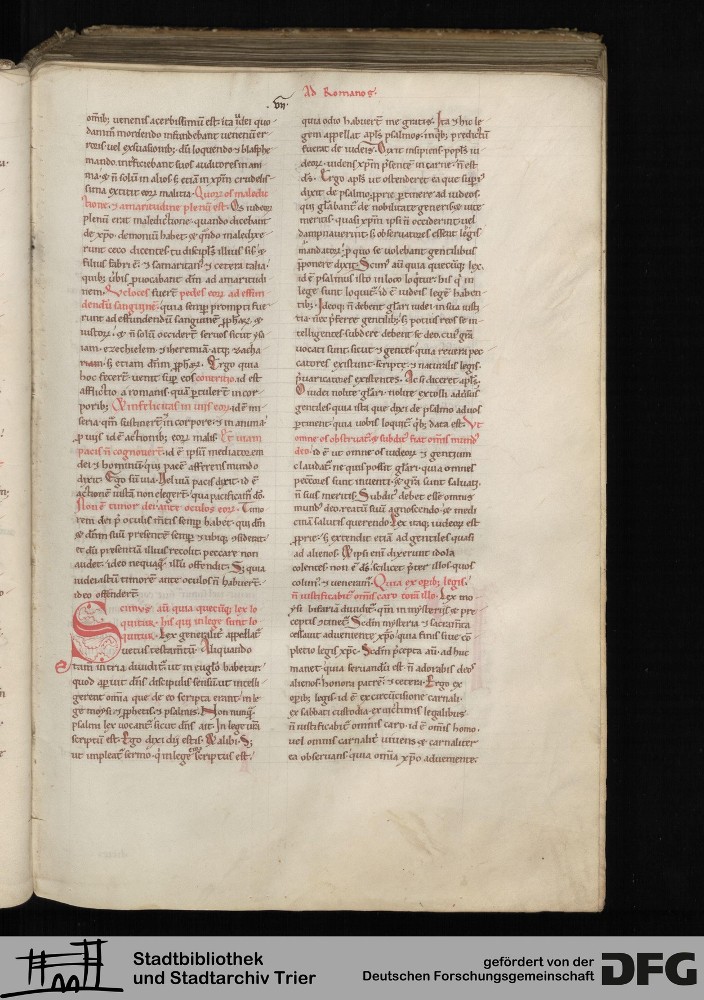 Ad Romanos.
.vii.
omīb; uenenis acerbissimū est. ita iudei quo
dammodo mordendo infundebant uenenū er
roris uel exsuasionib; dm̄ loquendo & blasphe
mando. inficiebant suos auditores in ani
ma. & n̄ solū in alios s; etiam in xp̄m crudelis
sima extitit eorz malitia. Quorz os maledic
tione. & amaritudine plenū est. Os iudeorz
plenū erat maledictione. quando dicebant
de xp̄o. demoniū habet. & qn̄do maledixe
runt ceco dicentes. tu discipl's illius sis. &
filius fabri ē. & samaritan' & cetera talia
quib; uerbis puocabant dm̄ ad amaritudi
nem. Veloces fuert̄ pedes eorz ad effun
dendū sanguinē. quia semp prompti fue
runt ad effundendū sanguinē pphar̄z &
iustorz. & n̄ solū occidert̄ seruos sicut ysa
iam. ezechielem & iheremiā atq; zacha
riam. s; etiam dn̄m pphar̄z. Ergo quia
hoc fecert̄. uenit sup eos contritio. id est
afflictio a romanis. quā ptulert̄ in cor
porib;. & infelicitas in uiis eorz. id ē mi
seria. qm̄ sustinert̄ in corpore & in anima.
p uiis id ē actionib; eorz malis. Et uiam
pacis n̄ cognouert̄. id ē ipsū mediatorem
dei & hominū. qui pacē afferens mundo
dixit. Ego sū uia. Vel uiā pacis dixit. id ē
actionē iustā non elegert̄. qua pacificam̄ do.
Non ē timor dei ante oculos eorz. Timo
rem dei p̄ oculis m̄tis semp habet. qui dm̄
& dn̄m suū presentē semp & ubiq; 9siderat.
et dū presentiā illius recolit. peccare non
audet. ideo nequaq̄ illū offendit. S; quia
iudei istū timorē ante oculos n̄ habuert̄.
ideo offendert̄.
Scimus aū quia quecūq; lex lo
quitur. his qui in lege sunt lo
quitur. Lex generalit̄ appellat̄
uetus testam̄tū. Aliquando
&tam in tria diuidit̄. ut in eugl̄o habetur.
quod apuit dn̄s discipulis sensū ut intelli
gerent om̄ia que de eo scripta erant in le
ge moysi. & pphetis & psalmis. Non nunq̄
psalmi lex uocant̄. sicut dn̄s ait. In lege ura
scriptū est. Ego dixi dij estis. & alibi. S;
ut impleat̄ sermo. q in lege eorz scriptus est.
quia odio habuert̄ me gratis. Ita & hic le
gem appellat apl's psalmos. in qb; predictū
fuerat de iudeis. Dixit insipiens popl's iu
deorz. uidens xp̄m p̄sente in carne. n̄ est
d's. Ergo apl's ut ostenderet ea que sup̄
dixit de psalmo pprie ptinere ad iudeos.
qui gl'abant̄ de nobilitate generis & uite
meritis. quasi xp̄m ipsi n̄ occiderint uel
dampnauerint. s; obseruatores essent legis
mandatorz. p quo se uolebant gentilibus
p̄ponere dixit. Scim' aū quia quecūq; lex.
id ē psalmus iste in loco loqt̄ur. his q in
lege sunt loquit̄. id ē iudeis legē haben
tib;. Ideoq; n̄ debent gl'ari iudei in sua iusti
tia nec p̄ferre gentilib;. s; potius reos se in
telligentes subdere debent se deo. cui' gr̄a
uocati sunt. sicut & gentes. quia reuera pec
catores existunt. scripte & naturalis legis
p̄uaricatores existentes. Ac si diceret apl's.
O iudei nolite gl'ari. nolite extolli aduersus
gentiles. quia ista que dixi de psalmo ad uos
ptinent. quia uobis loquit̄. qb; data est. Ut
omne os obstruat̄. & subdit' fiat om̄is mund'
deo. id ē ut omne os iudeorz & gentium
claudat̄. ne quis possit gl'ari. quia omnes
peccores sunt inuenti. & gr̄a sunt saluati.
n̄ suis meritis. Subdit' debet esse omnis
mund' deo. reatū suū agnoscendo. & medi
cinā salutis querendo. Lex itaq; iudeorz est
pprie. s; extendit̄ etiā ad gentiles quasi
ad alienos. & ipsi eni dixerunt idola
colentes. non ē d's. scilicet p̄ter illos quos
colim' & ueneram̄. Quia ex operib; legis.
n̄ iustificabit̄ om̄is caro corā illo. Lex mo
ysi bifariā diuidit̄. qm̄ in mysteriis & pre
ceptis 9stitit. Sedin mysteria & sacram̄ta
cessauit adueniente xp̄o. quia finis siue 9
pletio legis xp̄c. Sedm p̄cepta aū ad huc
manet. quia seruandū est n̄ adorabis deos
alienos. honora patrē. & cetera. Ergo ex
operib; legis. id ē ex circūcisione carnali.
ex sabbati custodia. & uictimis legalibus
n̄ iustificabit̄ omnis caro. id ē om̄is homo.
uel omnis carnalit̄ uiuens. & carnaliter
ea obseruans. quia om̄ia xp̄o adueniente.
Stadtbibliothek
und Stadtarchiv Trier
gefördert von der
Deutschen Forschungsgemeinschaft
DFG